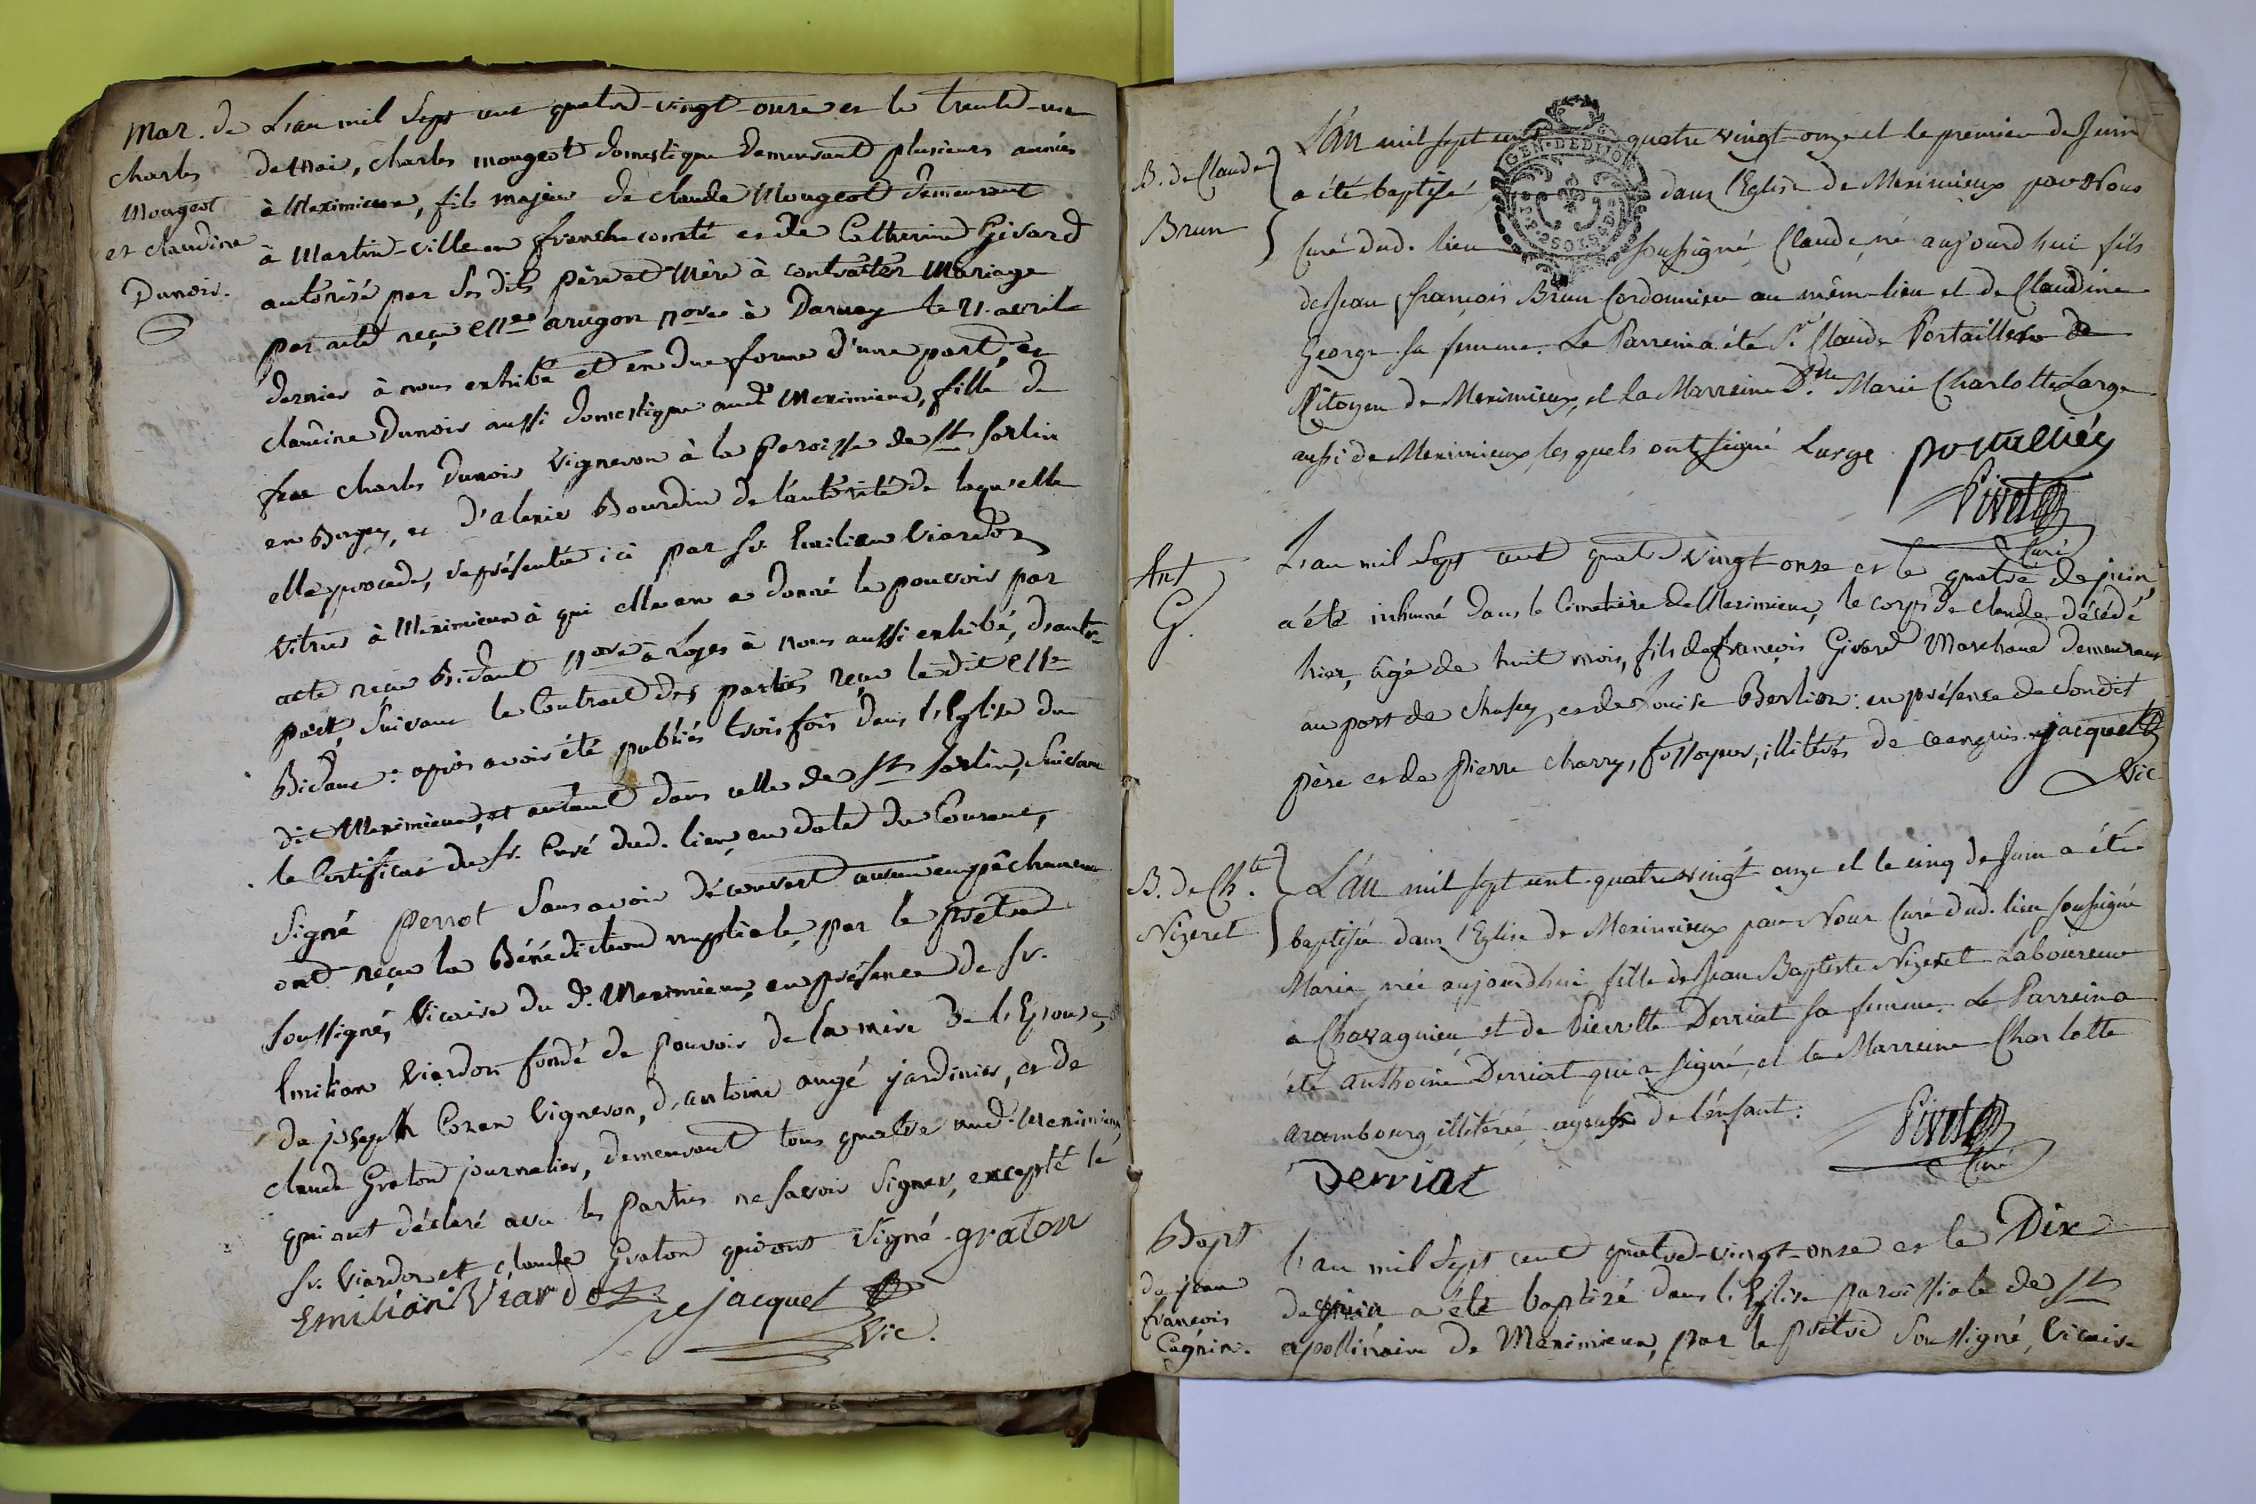 Mar. de
charles
Mougeot
et claudine
Dunoir.
L'an mil Sept cent quatre-vingt-onze et le trente-un
de mai, charles mougeot domestique demeurant plusieurs années
à Meximieux, fils majeur de claude Mougeot demeurant
à Martin-ville en franche comté et de Catherine Girard
autorisé par ses dits père et Mère à contracter Mariage
par acte reçu Me aragon nore à Darney le 21. avril
dernier à nous exhibé et en due forme d'une part, et
claudine Dunoir aussi domestique aud. Meximieux, fille de
feu charles Dunoir Vigneron à la Paroisse de St Sorlin
en Bugey, et d'alexie Bourdin de l'autorité de laquelle
elle procede, représentée ici par Sr. Emilian Viardot
Vitrier à Meximieux à qui elle en a donné le pouvoir par
acte reçu Bidant nore à Loyes à nous aussi exhibé, d'autre
part, Suivant le Contract des parties reçu le dit Me
Bidant: après avoir été publiés trois fois dans l'Eglise du
dit Meximieux, et autant dans celle de St Sorlin, Suivant
le Certificat du Sr. Curé dud. lieu, en date du Courant,
Signé Perrot Sans avoir découvert aucun empêchement
ont reçu la Bénédiction nuptiale, par le prêtre
Soussigné, Vicaire du d. Meximieux, en présence de Sr.
Emilian Viardot fondé de pouvoir de la mère de l'Epouse,
de joseph Cozon Vigneron, d'antoine augé jardinier, et de
claude Graton journalier, demeurant tous quatre aud. Meximieux,
qui ont déclaré avec les parties ne savoir Signer, excepté le
Sr. Viardot et claude Graton qui ont Signé. graton
Emilian Viardot jacquet
Vic.
B. de Claude
Brun
L'an mil sept cent quatre vingt-onze et le premier de Juin
a été baptisé dans l'Eglise de Meximieux par Nous
Curé dud. lieu soussigné, Claude, né aujourd'hui fils
de Jean françois Brun Cordonnier au même lieu et de Claudine
George sa femme. Le Parrein a été Sr. Claude Portallier
Citoyen de Meximieux, et la Marreine Dlle. Marie Charlotte Large
aussi de Meximieux, les quels ont signé Large portallier
Pivet
Curé
GEN. DE DIJON
Ant
G.
L'an mil Sept cent quatre Vingt onze et le quatre de juin,
a été inhumé dans le Cimetière de Meximieux, le corps de claude décédé
hier, âgé de huit mois, fils de françois Girard Marchand demeurant
au port de chasey, et de Louise Berlion: en présence de Sondit
père et de Pierre charry, fossoyeur, illiterés de ce enquis. jacquet
Vic
B. de Ch.te
Nizeret
L'an mil sept cent-quatre vingt onze et le cinq de Juin a été
baptisée dans l'Eglise de Meximieux par Nous Curé dud. lieu soussigné
Marie, née aujourd'hui fille de Jean Baptiste Nizeret Laboureur
a Chavagnieu et de Pierrette Derriat sa femme. Le Parrein a
été Anthoine Derriat qui a signé, et la Marreine Charlotte
arambourg illiterée, ayeuls de l'enfant:
Derriat
Pivet
Curé
Bapt
de jean
françois
Cagnin.
L'an mil Sept cent quatre-vingt-onze et le Dix
de juin a été baptizé dans l'Eglise paroissiale de St
apollinaire de Meximieux, par le prêtre Soussigné, Vicaire